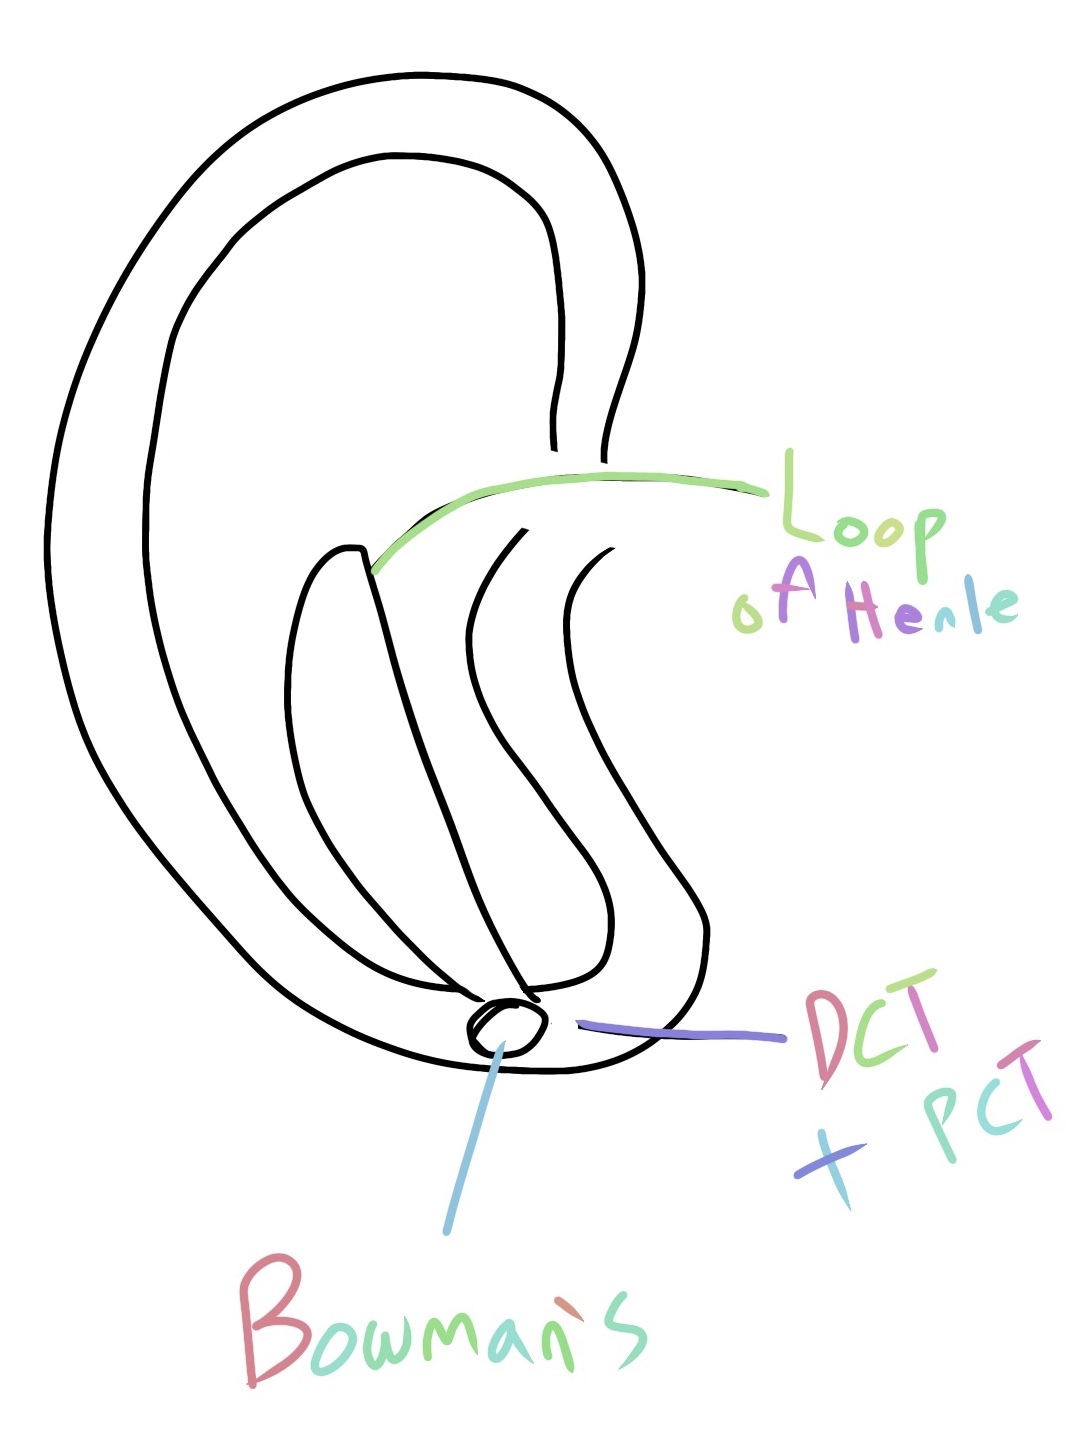 Loop
of Henle
DCT
+ PCT
Bowman's